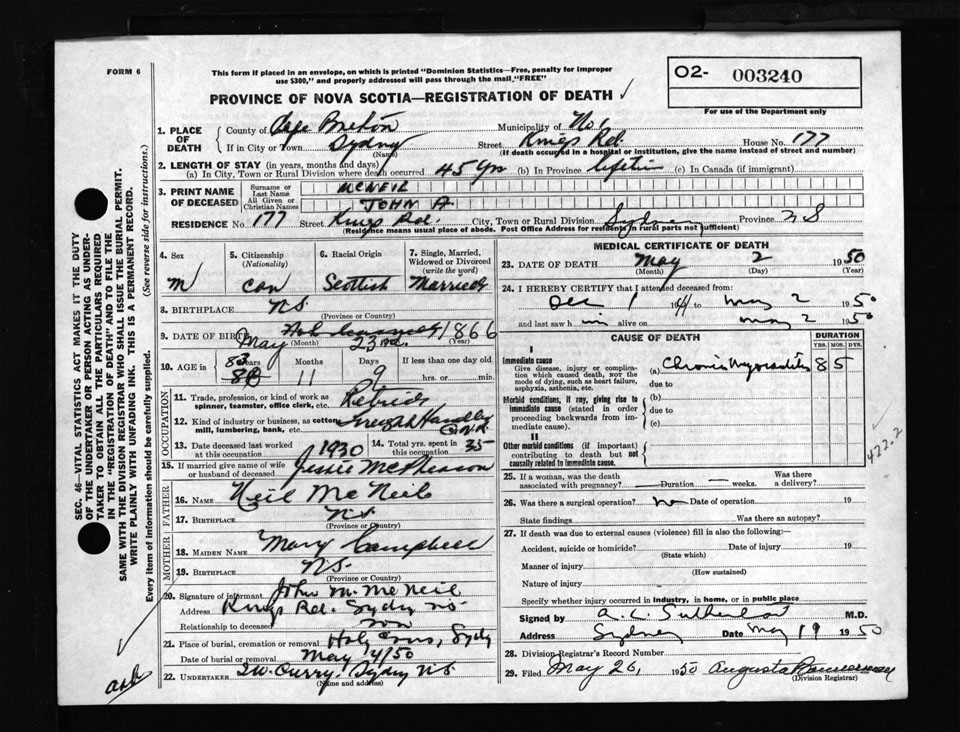 FORM 6
This form if placed in an envelope, on which is printed "Dominion Statistics—Free, penalty for improper
use $300," and properly addressed will pass through the mail "FREE"
O2- 003240
For use of the Department only
PROVINCE OF NOVA SCOTIA—REGISTRATION OF DEATH
1. PLACE OF DEATH
County of Cape Breton Municipality of No 1
If in City or Town Sydney (Name) Street Kings Rd House No. 177
(If death occurred in a hospital or institution, give the name instead of street and number)
2. LENGTH OF STAY (in years, months and days)
(a) In City, Town or Rural Division where death occurred 45 yrs (b) In Province (c) In Canada (if immigrant)
3. PRINT NAME OF DECEASED
Surname or Last Name MCNEIL
All Given or Christian Names JOHN A
RESIDENCE No. 177 Street Kings Rd. City, Town or Rural Division Sydney Province NS
(Residence means usual place of abode. Post Office Address for residents in rural parts not sufficient)
4. Sex M
5. Citizenship (Nationality) Can
6. Racial Origin Scottish
7. Single, Married, Widowed or Divorced (write the word) Married
8. BIRTHPLACE NS
(Province or Country)
9. DATE OF BIRTH May (Month) 23rd 1866 (Year)
10. AGE in 83 Years 11 Months 9 Days If less than one day old
hrs. or min.
OCCUPATION
11. Trade, profession, or kind of work as spinner, teamster, office clerk, etc. Retired
12. Kind of industry or business, as cotton mill, lumbering, bank, etc. Freight Handler
13. Date deceased last worked at this occupation 1930
14. Total yrs. spent in this occupation 35
15. If married give name of wife or husband of deceased Jessie McPherson
FATHER
16. NAME Neil McNeil
17. BIRTHPLACE NS
(Province or Country)
MOTHER
18. MAIDEN NAME Mary Campbell
19. BIRTHPLACE NS.
(Province or Country)
20. Signature of informant John M. McNeil
Address Kings Rd. Sydney NS
Relationship to deceased son
21. Place of burial, cremation or removal Holy Cross, Sydney
Date of burial or removal May 4/50
22. UNDERTAKER Curry, Sydney NS
(Name and address)
MEDICAL CERTIFICATE OF DEATH
23. DATE OF DEATH May 2 1950
(Month) (Day) (Year)
24. I HEREBY CERTIFY that I attended deceased from:
Dec 1 1941 to May 2 1950
and last saw him alive on May 2 1950
CAUSE OF DEATH
DURATION
YRS. MOS. DYS.
I
Immediate cause
Give disease, injury or complication which caused death, not the mode of dying, such as heart failure, asphyxia, asthenia, etc.
(a) Chronic Myocarditis 8 5
due to
Morbid conditions, if any, giving rise to immediate cause (stated in order proceeding backwards from immediate cause).
(b)
due to
(c)
II
Other morbid conditions (if important) contributing to death but not causally related to immediate cause.
422.2
25. If a woman, was the death associated with pregnancy? Duration — weeks. Was there a delivery?
26. Was there a surgical operation? no Date of operation 19
State findings Was there an autopsy?
27. If death was due to external causes (violence) fill in also the following:
Accident, suicide or homicide? Date of injury 19
(State which)
Manner of injury
(How sustained)
Nature of injury
Specify whether injury occurred in industry, in home, or in public place
Signed by A. L. Sutherland M.D.
Address Sydney Date May 19 1950
28. Division Registrar's Record Number
29. Filed May 26, 1950 Augusta
(Division Registrar)
SEC. 46—VITAL STATISTICS ACT MAKES IT THE DUTY
OF THE UNDERTAKER OR PERSON ACTING AS UNDER-
TAKER TO OBTAIN ALL THE PARTICULARS REQUIRED
IN THE "REGISTRATION OF DEATH" AND TO FILE THE
SAME WITH THE DIVISION REGISTRAR WHO SHALL ISSUE THE BURIAL PERMIT.
WRITE PLAINLY WITH UNFADING INK. THIS IS A PERMANENT RECORD.
Every item of information should be carefully supplied. (See reverse side for instructions.)